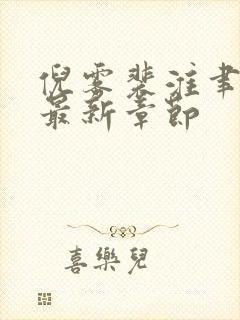 倪雾裴淮聿
最新章節
喜樂兒